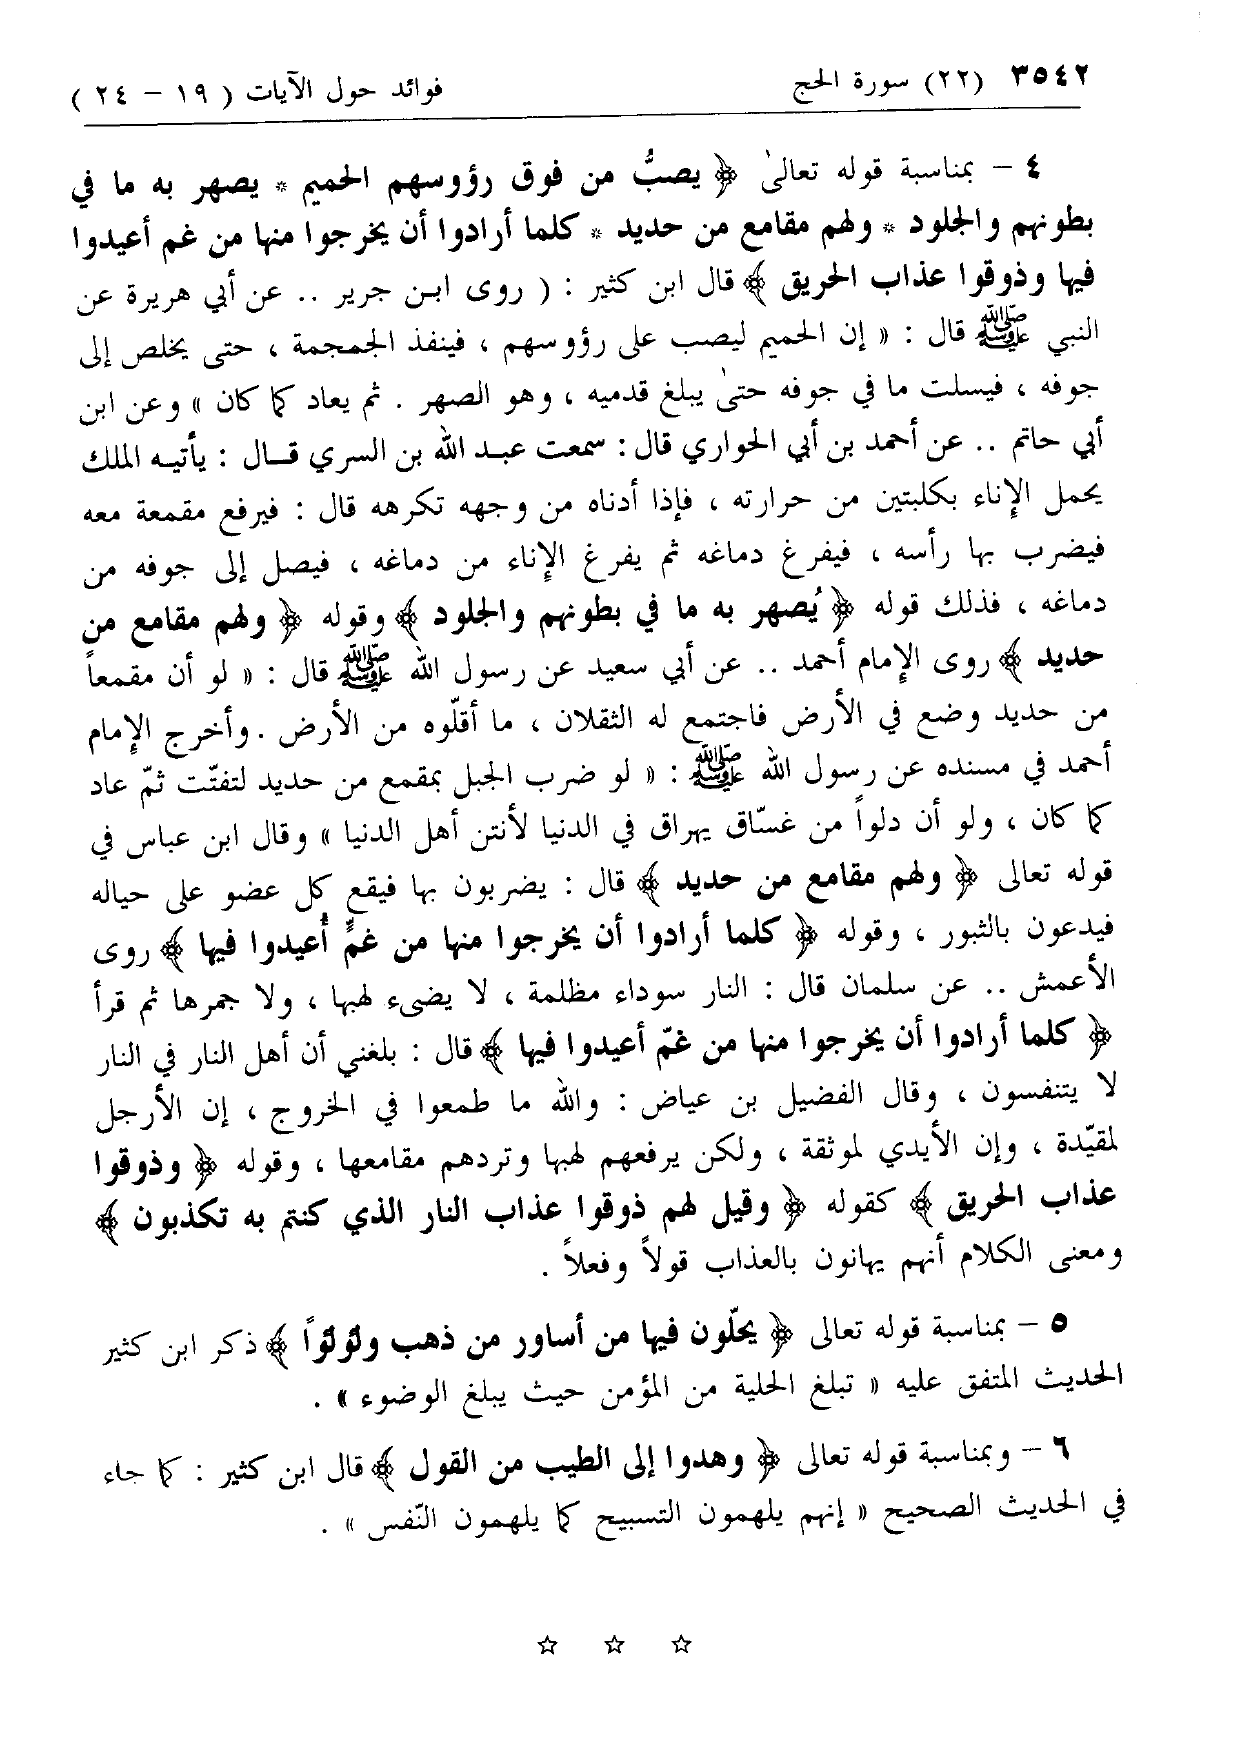 ٣٥٤٢ (٢٢) سورة الحج فوائد حول الآيات ( ١٩ – ٢٤ )
٤ – بمناسبة قوله تعالىٰ ﴿ يصبُّ من فوق رؤوسهم الحميم * يصهر به ما في
بطونهم والجلود * ولهم مقامع من حديد * كلما أرادوا أن يخرجوا منها من غم أعيدوا
فيها وذوقوا عذاب الحريق ﴾ قال ابن كثير : ( روى ابن جرير .. عن أبي هريرة عن
النبي ﷺ قال : « إن الحميم ليصب على رؤوسهم ، فينفذ الجمجمة ، حتى يخلص إلى
جوفه ، فيسلت ما في جوفه حتىٰ يبلغ قدميه ، وهو الصهر . ثم يعاد كما كان » وعن ابن
أبي حاتم .. عن أحمد بن أبي الحواري قال : سمعت عبد الله بن السري قال : يأتيه الملك
يحمل الإناء بكلبتين من حرارته ، فإذا أدناه من وجهه تكرهه قال : فيرفع مقمعة معه
فيضرب بها رأسه ، فيفرغ دماغه ثم يفرغ الإناء من دماغه ، فيصل إلى جوفه من
دماغه ، فذلك قوله ﴿ يُصهر به ما في بطونهم والجلود ﴾ وقوله ﴿ ولهم مقامع من
حديد ﴾ روى الإمام أحمد .. عن أبي سعيد عن رسول الله ﷺ قال : « لو أن مقمعاً
من حديد وضع في الأرض فاجتمع له الثقلان ، ما أقلّوه من الأرض . وأخرج الإمام
أحمد في مسنده عن رسول الله ﷺ : « لو ضرب الجبل بمقمع من حديد لتفتّت ثمّ عاد
كما كان ، ولو أن دلواً من غسّاق يهراق في الدنيا لأنتن أهل الدنيا » وقال ابن عباس في
قوله تعالى ﴿ ولهم مقامع من حديد ﴾ قال : يضربون بها فيقع كل عضو على حياله
فيدعون بالثبور ، وقوله ﴿ كلما أرادوا أن يخرجوا منها من غمٍّ أُعيدوا فيها ﴾ روى
الأعمش .. عن سلمان قال : النار سوداء مظلمة ، لا يضىء لهبها ، ولا جمرها ثم قرأ
﴿ كلما أرادوا أن يخرجوا منها من غمّ أعيدوا فيها ﴾ قال : بلغني أن أهل النار في النار
لا يتنفسون ، وقال الفضيل بن عياض : والله ما طمعوا في الخروج ، إن الأرجل
لمقيّدة ، وإن الأيدي لموثقة ، ولكن يرفعهم لهبها وتردهم مقامعها ، وقوله ﴿ وذوقوا
عذاب الحريق ﴾ كقوله ﴿ وقيل لهم ذوقوا عذاب النار الذي كنتم به تكذبون ﴾
ومعنى الكلام أنهم يهانون بالعذاب قولاً وفعلاً .
٥ – بمناسبة قوله تعالى ﴿ يحلّون فيها من أساور من ذهب ولؤلؤاً ﴾ ذكر ابن كثير
الحديث المتفق عليه « تبلغ الحلية من المؤمن حيث يبلغ الوضوء » .
٦ – وبمناسبة قوله تعالى ﴿ وهدوا إلى الطيب من القول ﴾ قال ابن كثير : كما جاء
في الحديث الصحيح « إنهم يلهمون التسبيح كما يلهمون النّفس » .
☆ ☆ ☆